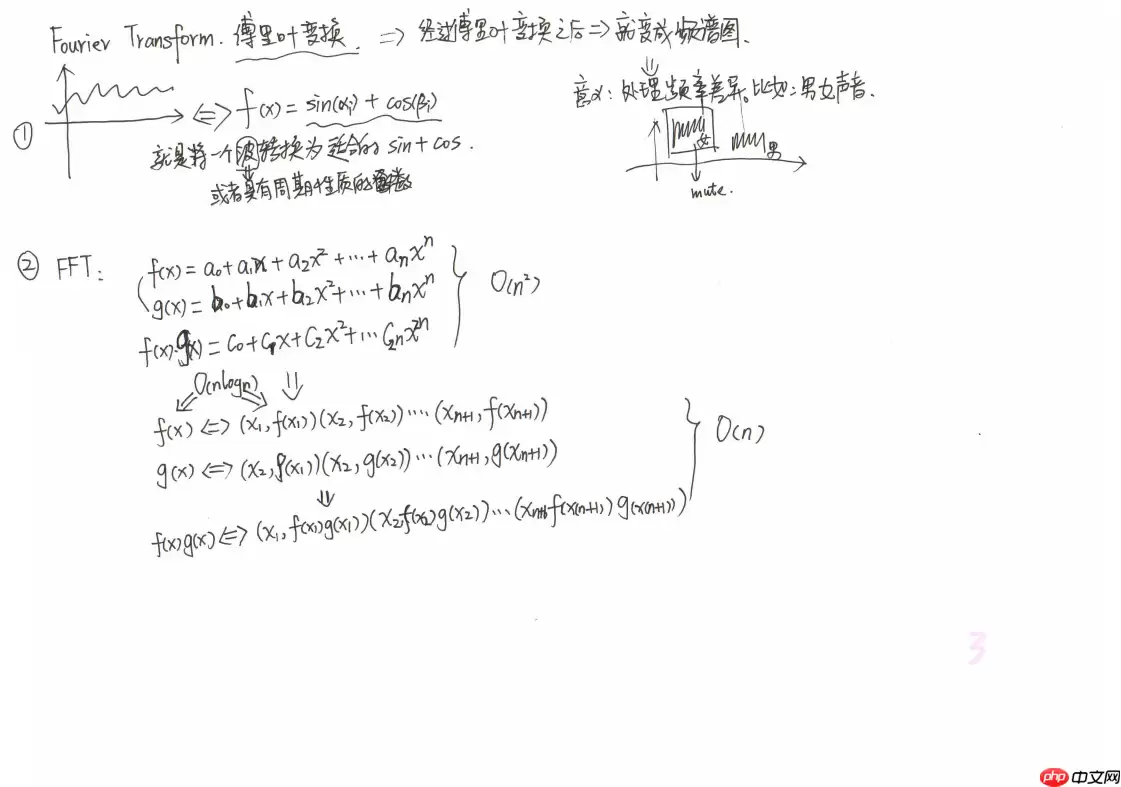 Fourier Transform. 傅里叶变换. ⇒ 经过傅里叶变换之后 ⇒ 就变成频谱图.
意义: 处理频率差异。比如: 男女声音.
① ⇔ f(x) = sin(αi) + cos(βi)
就是将一个波转换为适合的 sin + cos.
或者具有周期性质的函数
女 男
mute.
② FFT:
f(x) = a₀ + a₁x + a₂x² + ... + aₙxⁿ
g(x) = b₀ + b₁x + b₂x² + ... + bₙxⁿ
O(n²)
f(x)·g(x) = c₀ + c₁x + c₂x² + ... c₂ₙx²ⁿ
O(nlogn) ⇓
f(x) ⇔ (x₁, f(x₁)) (x₂, f(x₂)) .... (xₙ₊₁, f(xₙ₊₁))
O(n)
g(x) ⇔ (x₂, f(x₁)) (x₂, g(x₂)) ... (xₙ₊₁, g(xₙ₊₁))
⇓
f(x)g(x) ⇔ (x₁, f(x₁)g(x₁)) (x₂, f(x₂)g(x₂)) ... (xₙ₊₁ f(x(n+1)) g(x(n+1)))
3
php 中文网